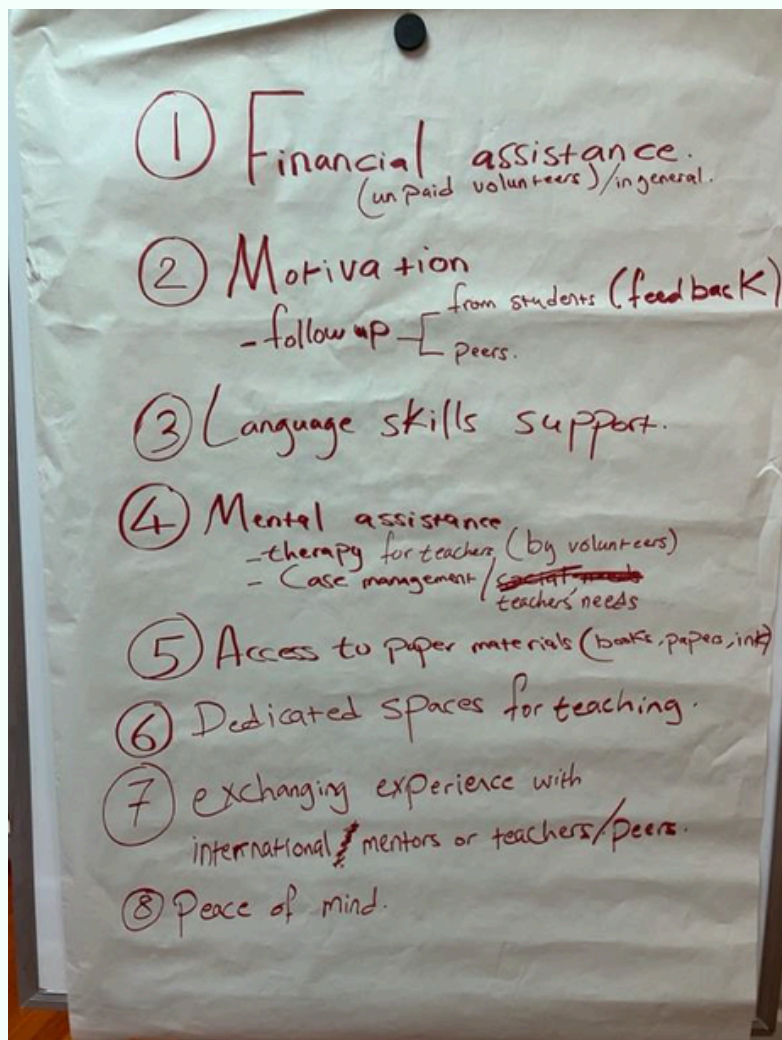 ① Financial assistance.
(unpaid volunteers)/in general.
② Motivation
- follow up - from students (feedback)
peers.
③ Language skills support.
④ Mental assistance
- therapy for teachers (by volunteers)
- Case management/social needs
teachers' needs
⑤ Access to paper materials (books, papers, ink)
⑥ Dedicated spaces for teaching.
⑦ exchanging experience with
international mentors or teachers/peers.
⑧ Peace of mind.